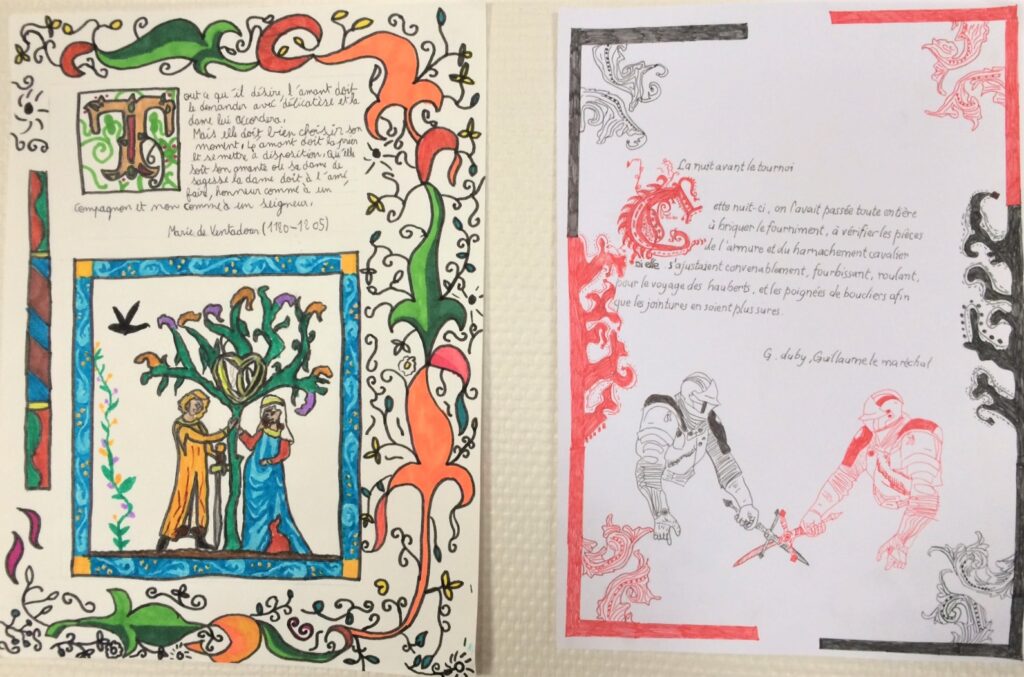 Tout ce qu'il désire, l'amant doit
le demander avec délicatesse et la
dame lui accordera.
Mais elle doit bien choisir son
moment. Le amant doit la prier
et se mettre à disposition. Qu'elle
soit son amante où sa dame de
sagesse la dame doit à l'ami
faire, honneur comme à un
compagnon et non comme à un seigneur.
Marie de Ventadorn (1180-1205)
La nuit avant le tournoi
Cette nuit-ci, on l'avait passée toute entière
à briquer le fourniment, à vérifier les pièces
de l'armure et du harnachement cavalier
si elle s'ajustaient convenablement, fourbissant, roulant,
pour le voyage des hauberts, et les poignées de bouchiers afin
que les jointures en soient plus sures.
G. duby, Guillaume le maréchal